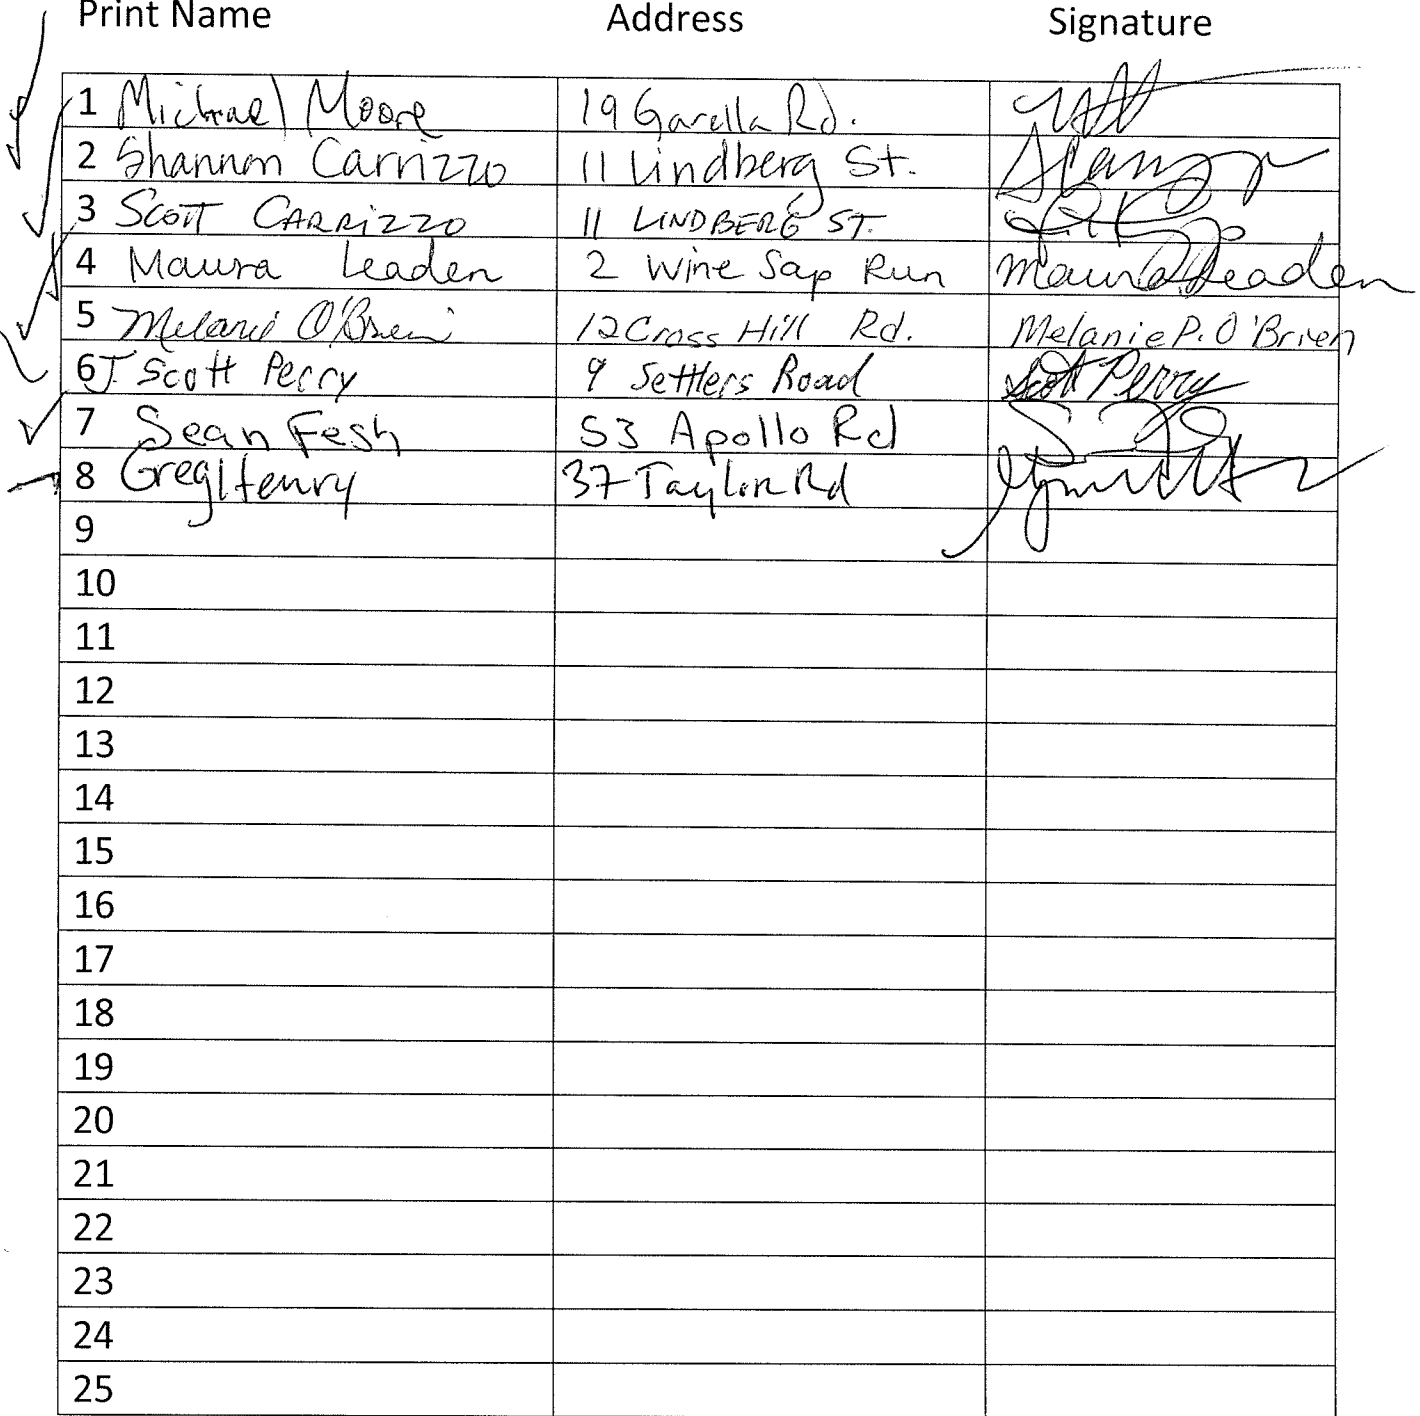 Print Name Address Signature
1 Michael Moore 19 Garella Rd.
2 Shannon Carrizzo 11 Lindberg St.
3 SCOTT CARRIZZO 11 LINDBERG ST.
4 Maura Leaden 2 Wine Sap Run Maura Leaden
5 Melanie O'Brien 12 Cross Hill Rd. Melanie P. O'Brien
6 J. Scott Perry 9 Settlers Road Scott Perry
7 Sean Fesh 53 Apollo Rd
8 Greg Henry 37 Taylor Rd
9
10
11
12
13
14
15
16
17
18
19
20
21
22
23
24
25